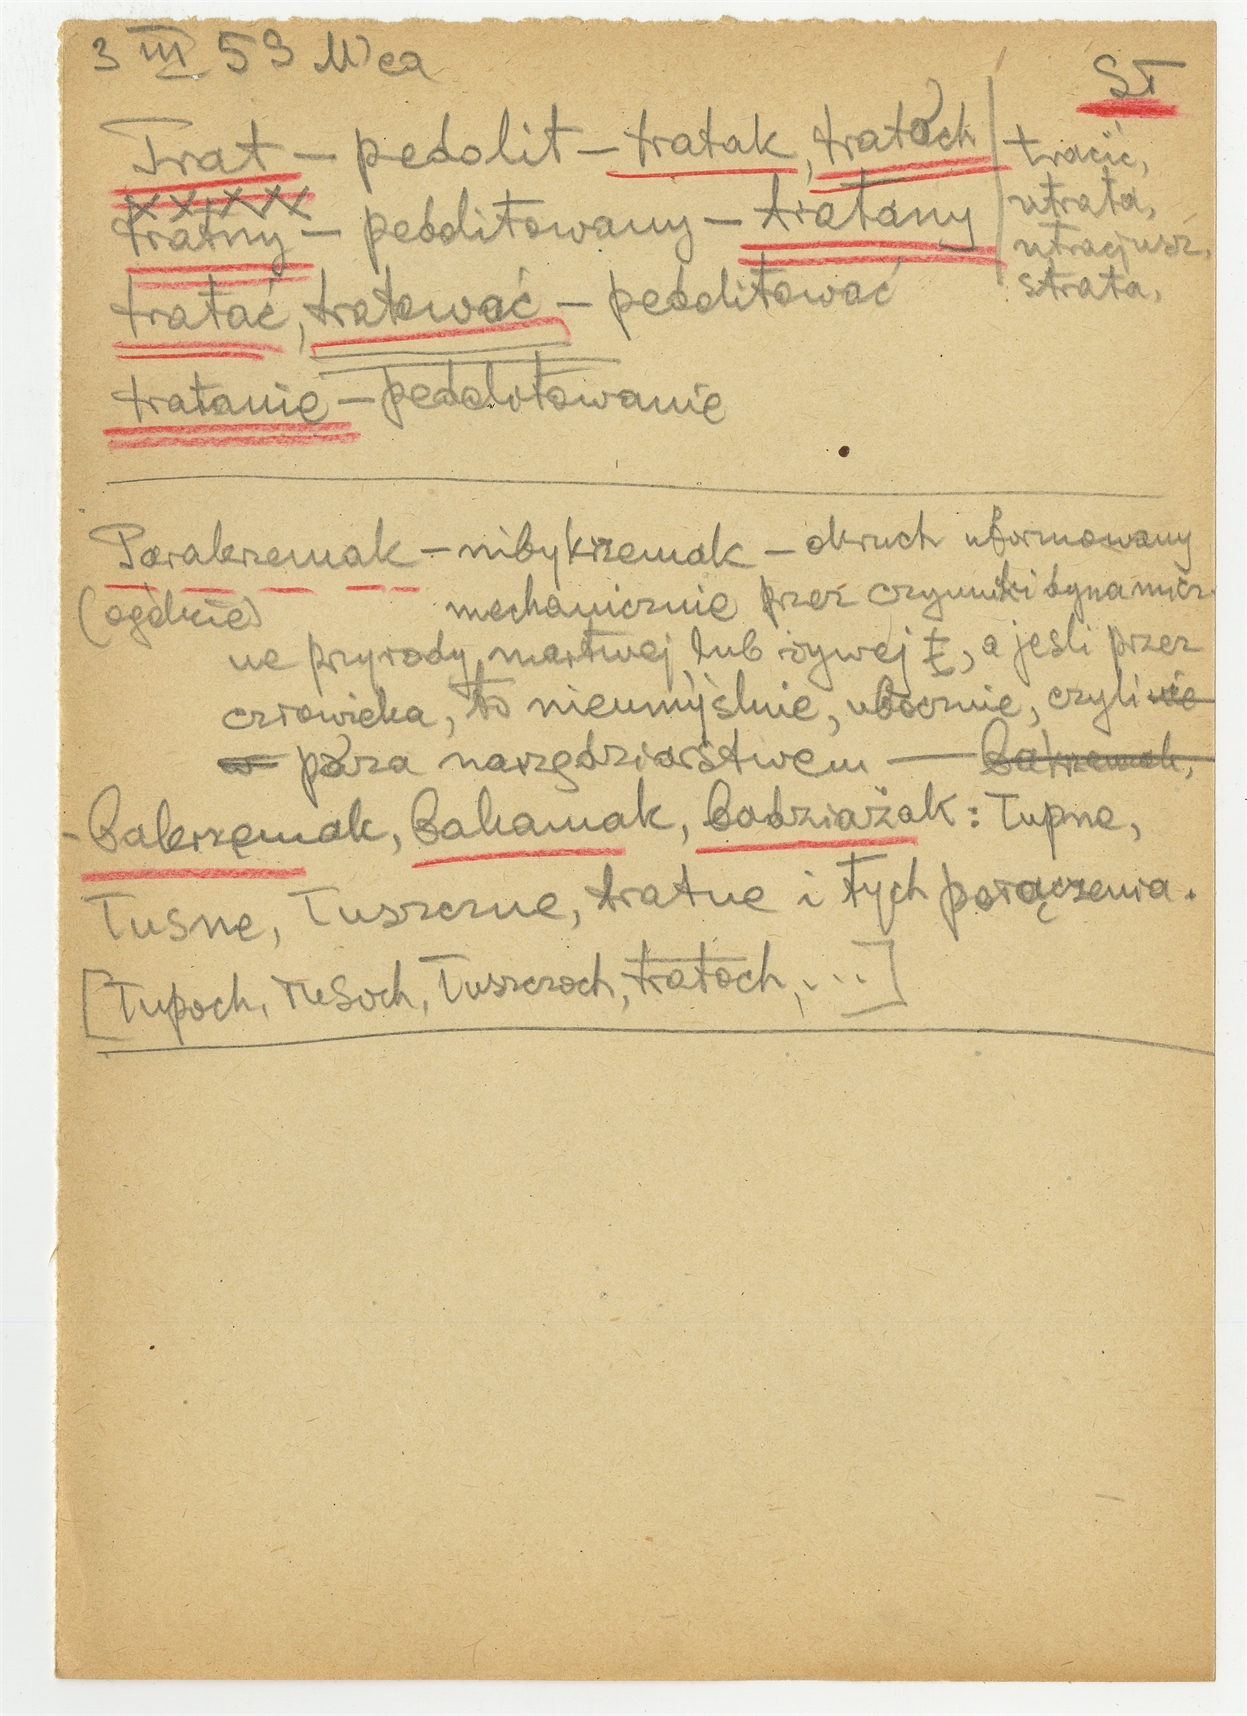 3 III 59 Wca
St
Trat – pedolit – tratak, tratoch
tracić,
utrata,
utracjusz,
strata,
tratny – pedolitowany – tratany
tratać, tratować – pedolitować
tratanie – pedolitowanie
Parakrzemak – nibykrzemak – okruch uformowany
(ogólnie) mechanicznie przez czynniki dynamicz-
ne przyrody martwej lub żywej, a jeśli przez
człowieka, to nieumyślnie, ubocznie, czyli nie
w poza narzędziarstwem — bakrzemak,
- bakrzemak, bakamak, badziażak: tupne,
tusne, tuszczne, tratne i tych połączenia.
[tupoch, tusoch, tuszczoch, tratoch, ...]